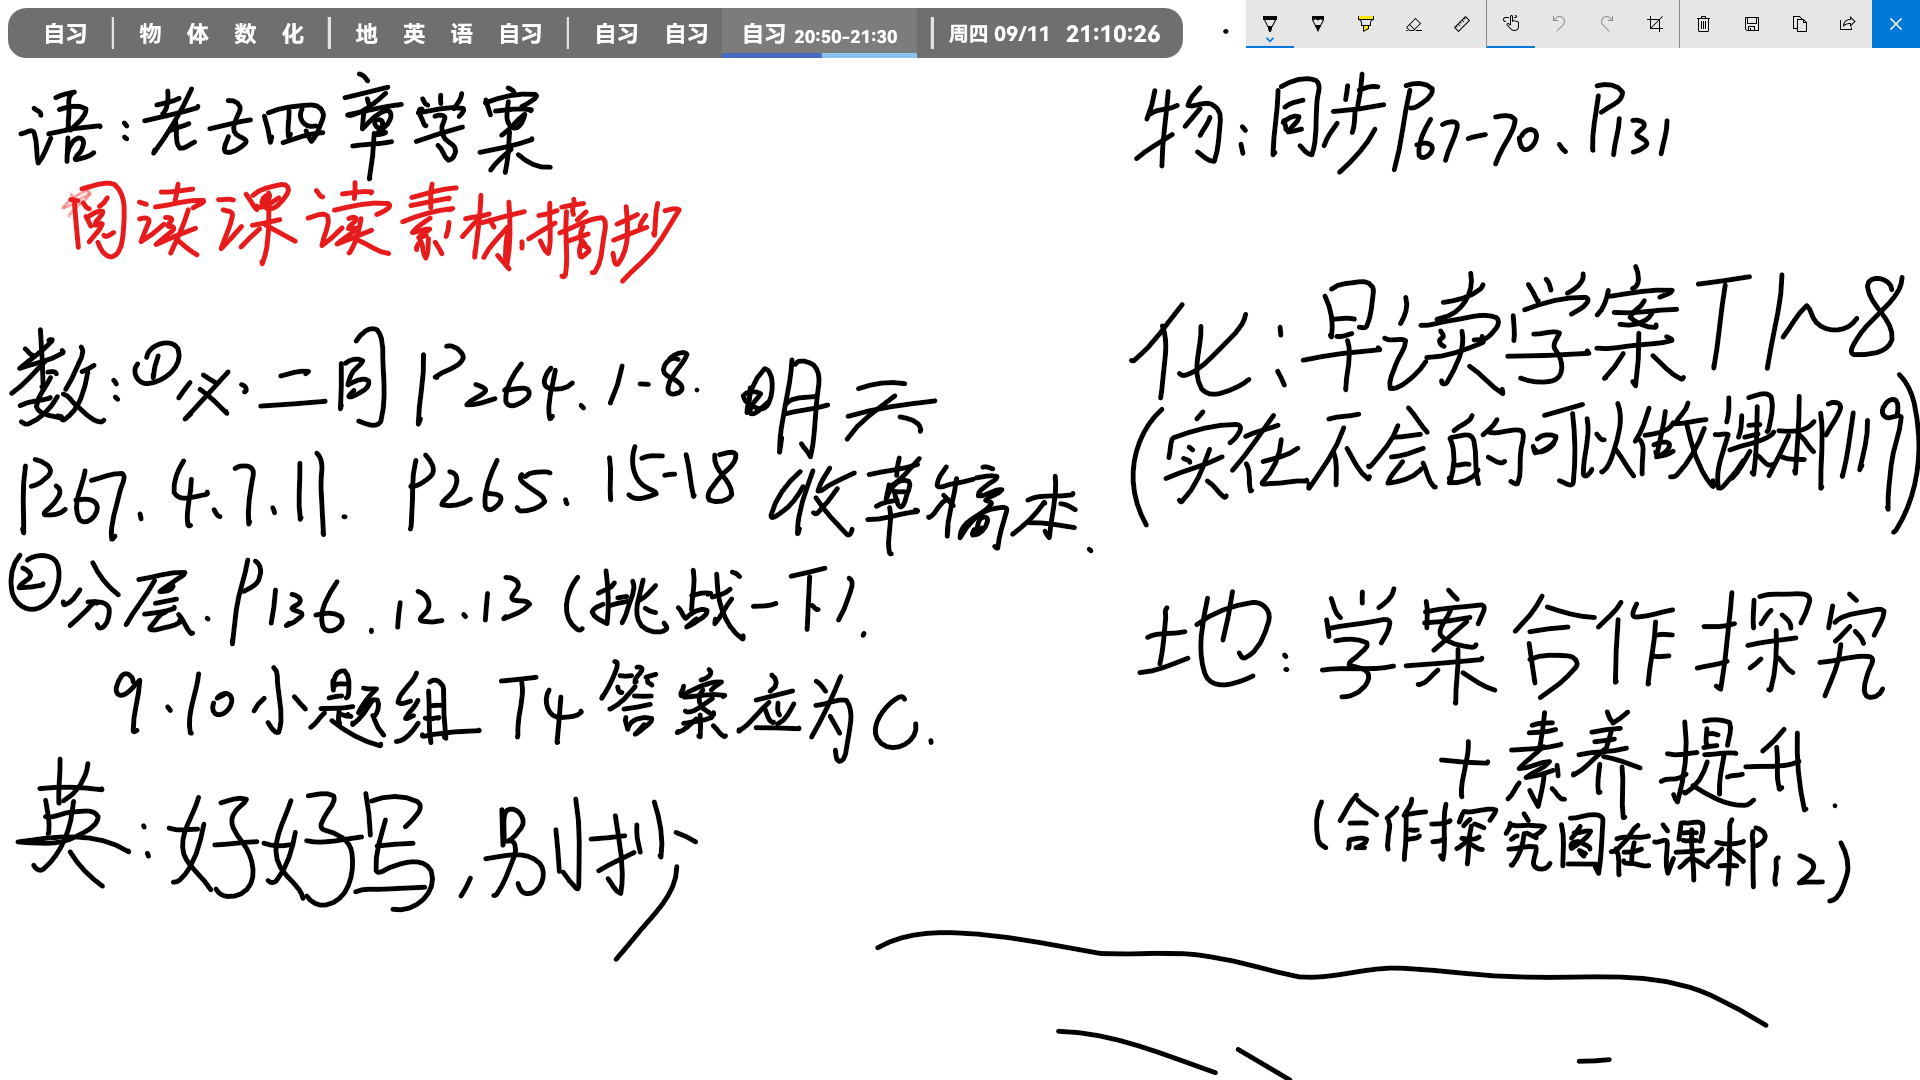 自习 | 物 体 数 化 | 地 英 语 自习 | 自习 自习 自习 20:50-21:30 | 周四 09/11 21:10:26
语:老子四章学案
阅读课读素材摘抄
数:①必二同 P264. 1-8. 明天
P267. 4. 7. 11. P265. 15-18 收草稿本.
②分层. P136. 12. 13 (挑战一下).
9. 10 小题组 T4 答案应为 C.
英:好好写,别抄
物:同步P67-70、P131
化:早读学案T1~8
(实在不会的可以做课本P119)
地:学案合作探究
+素养提升.
(合作探究图在课本P12)